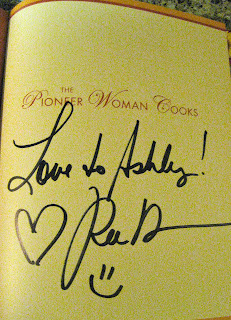 THE
PIONEER WOMAN COOKS
Love to Ashley!
Ree D